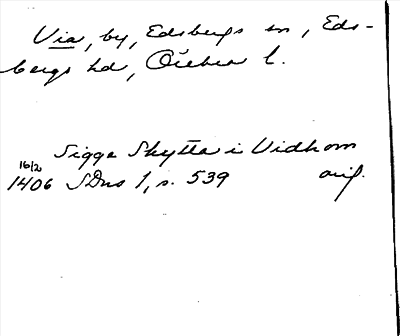 Via, by, Edsbergs sn, Eds-
bergs hd, Örebro l.
Sigge Skytta i Vidhem
16/2
1406 SDns 1, s. 539 orig.